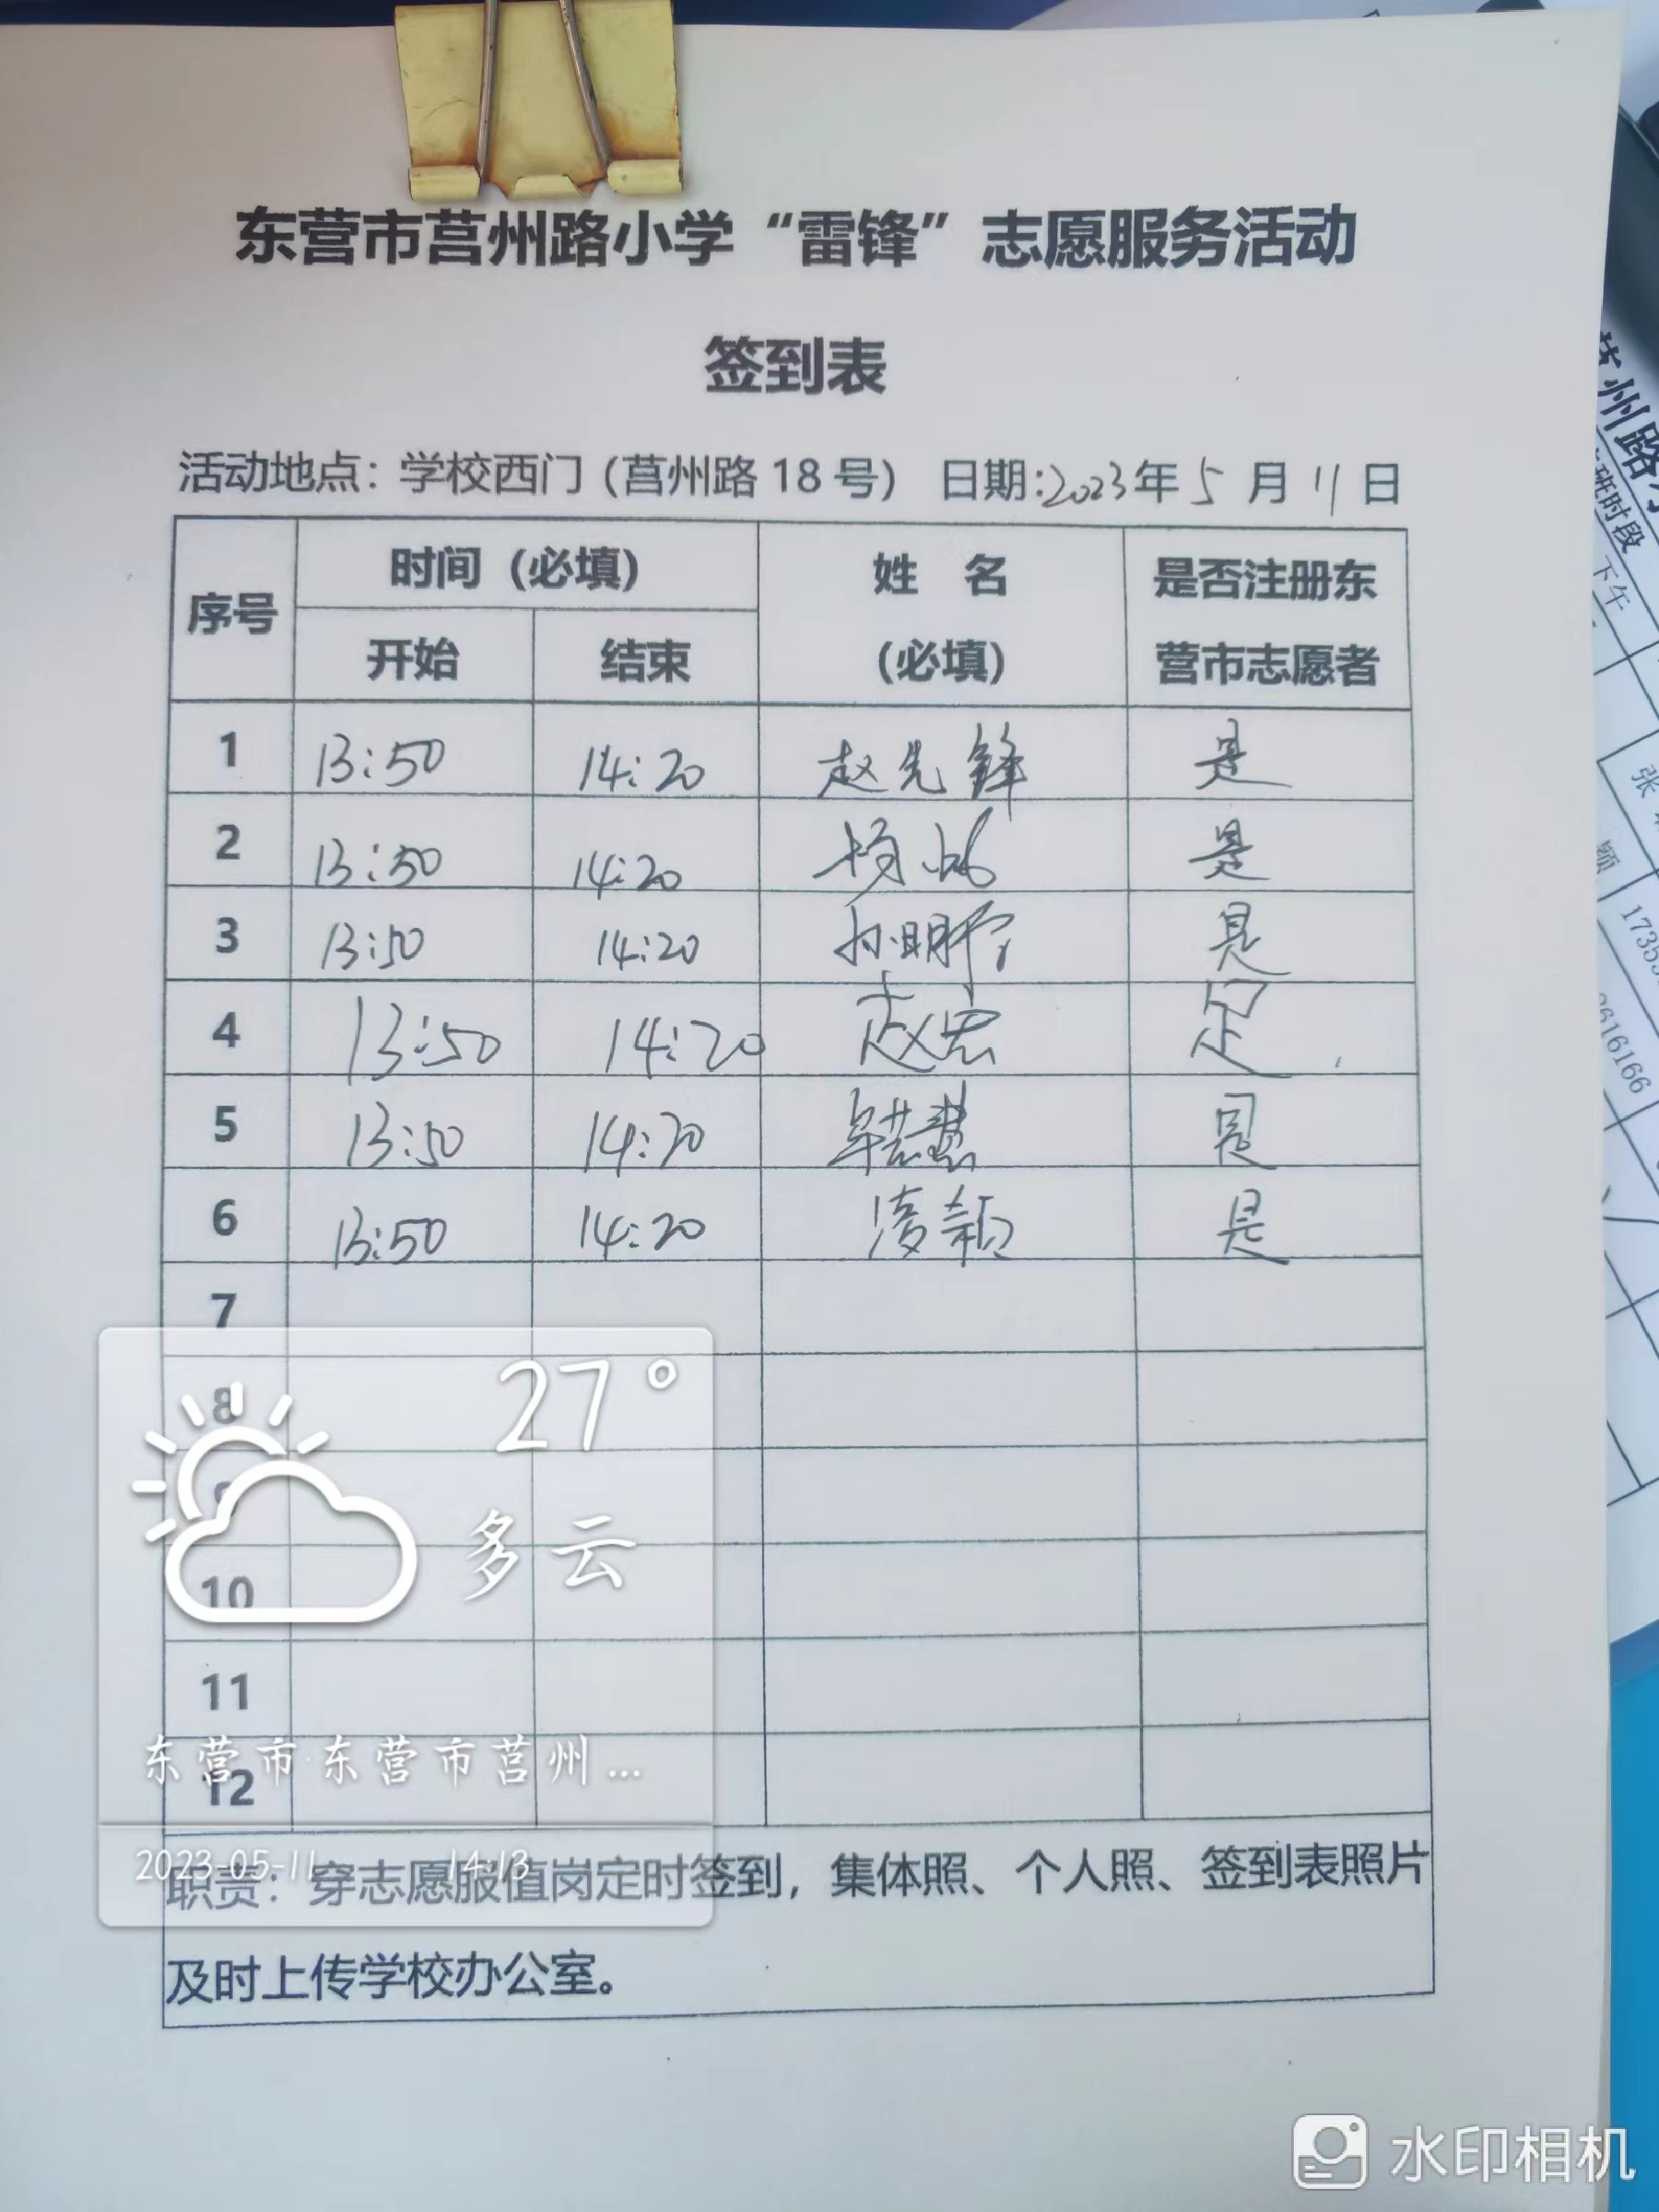 东营市莒州路小学“雷锋”志愿服务活动
签到表
活动地点：学校西门（莒州路18号） 日期:2023年5月11日
序号 时间（必填） 姓 名 是否注册东
开始 结束 （必填） 营市志愿者
1 13:50 14:20 赵先锋 是
2 13:50 14:20 杨 是
3 13:50 14:20 孙明 是
4 13:50 14:20 赵宏 是
5 13:50 14:20 是
6 13:50 14:20 凌颖 是
7
8
9
10
11
12
职责：穿志愿服值岗定时签到，集体照、个人照、签到表照片
及时上传学校办公室。
27°
多云
东营市·东营市莒州...
2023-05-11 14:13
水印相机
州路
班时段
下午
张
颖
1735
3616166